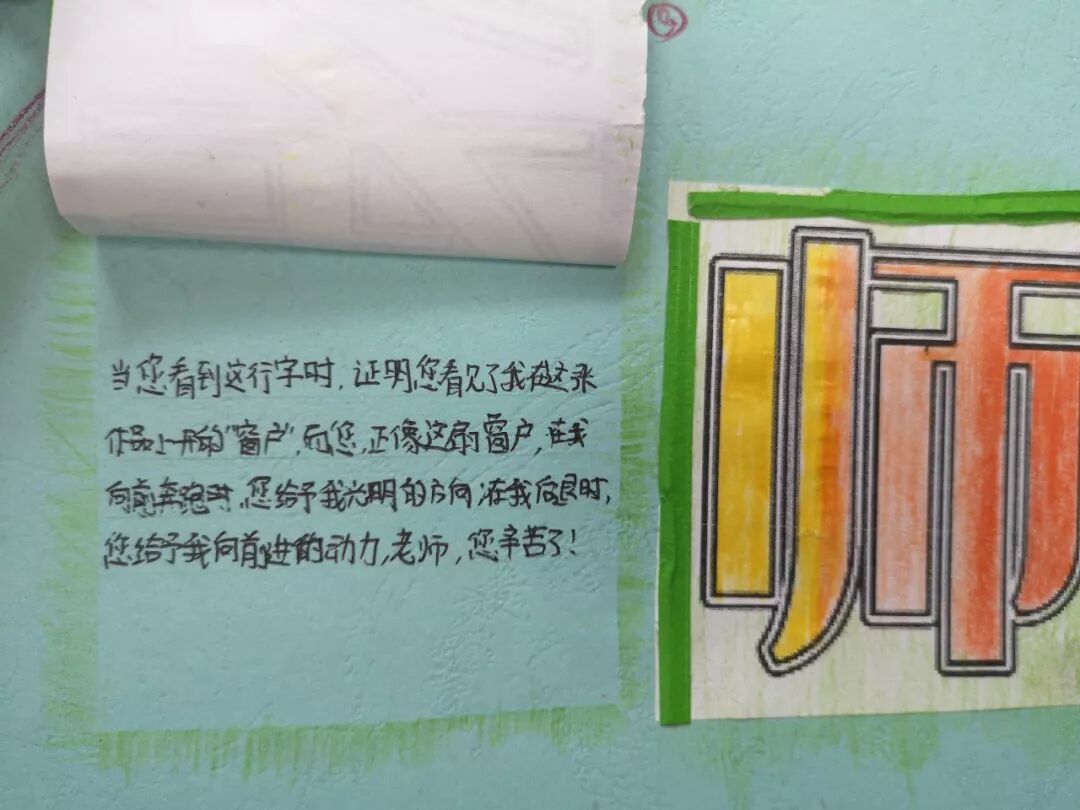 当您看到这行字时,证明您看见了我在这张
作品上开的“窗户”,而您,正像这扇窗户,在我
向前奔跑时,您给予我光明的方向;在我后退时,
您给予我向前进的动力,老师,您辛苦了!
师